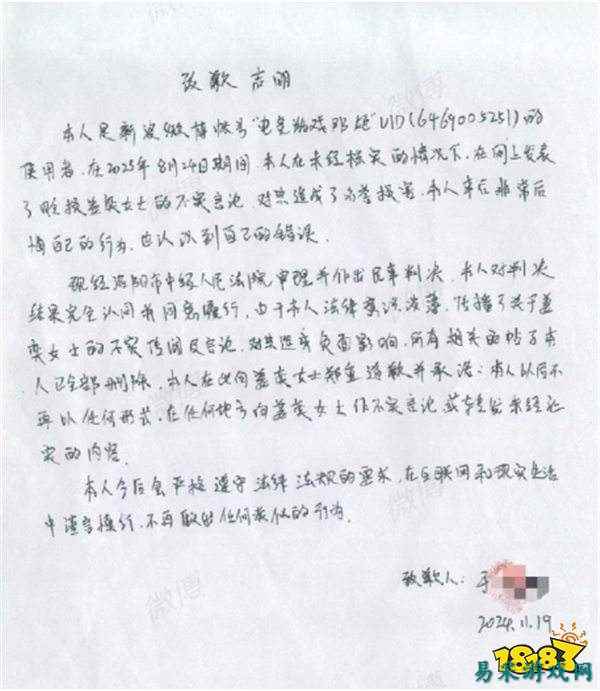 致歉声明
本人是新浪微博帐号"电竞游戏 " UID(6469005251)的
使用者,在2023年8月24日期间,本人在未经核实的情况下,在网上发表
了贬损盖奕女士的不实言论,对其造成了名誉损害,本人事后非常后
悔自己的行为,也认识到自己的错误。
现经沈阳市中级人民法院审理并作出民事判决,本人对判决
结果完全认同并同意履行,由于本人法律意识淡薄,传播了关于盖
奕女士的不实传闻及言论,对其造成负面影响,所有相关的帖子本
人已全部删除,本人在此向盖奕女士郑重道歉并承诺:本人以后不
再以任何形式,在任何地方向盖奕女士作不实言论或转发未经证
实的内容。
本人今后会严格遵守法律法规的要求,在互联网和现实生活
中谨言慎行,不再做出任何类似的行为。
致歉人:
2024.11.19
18183
易采游戏网